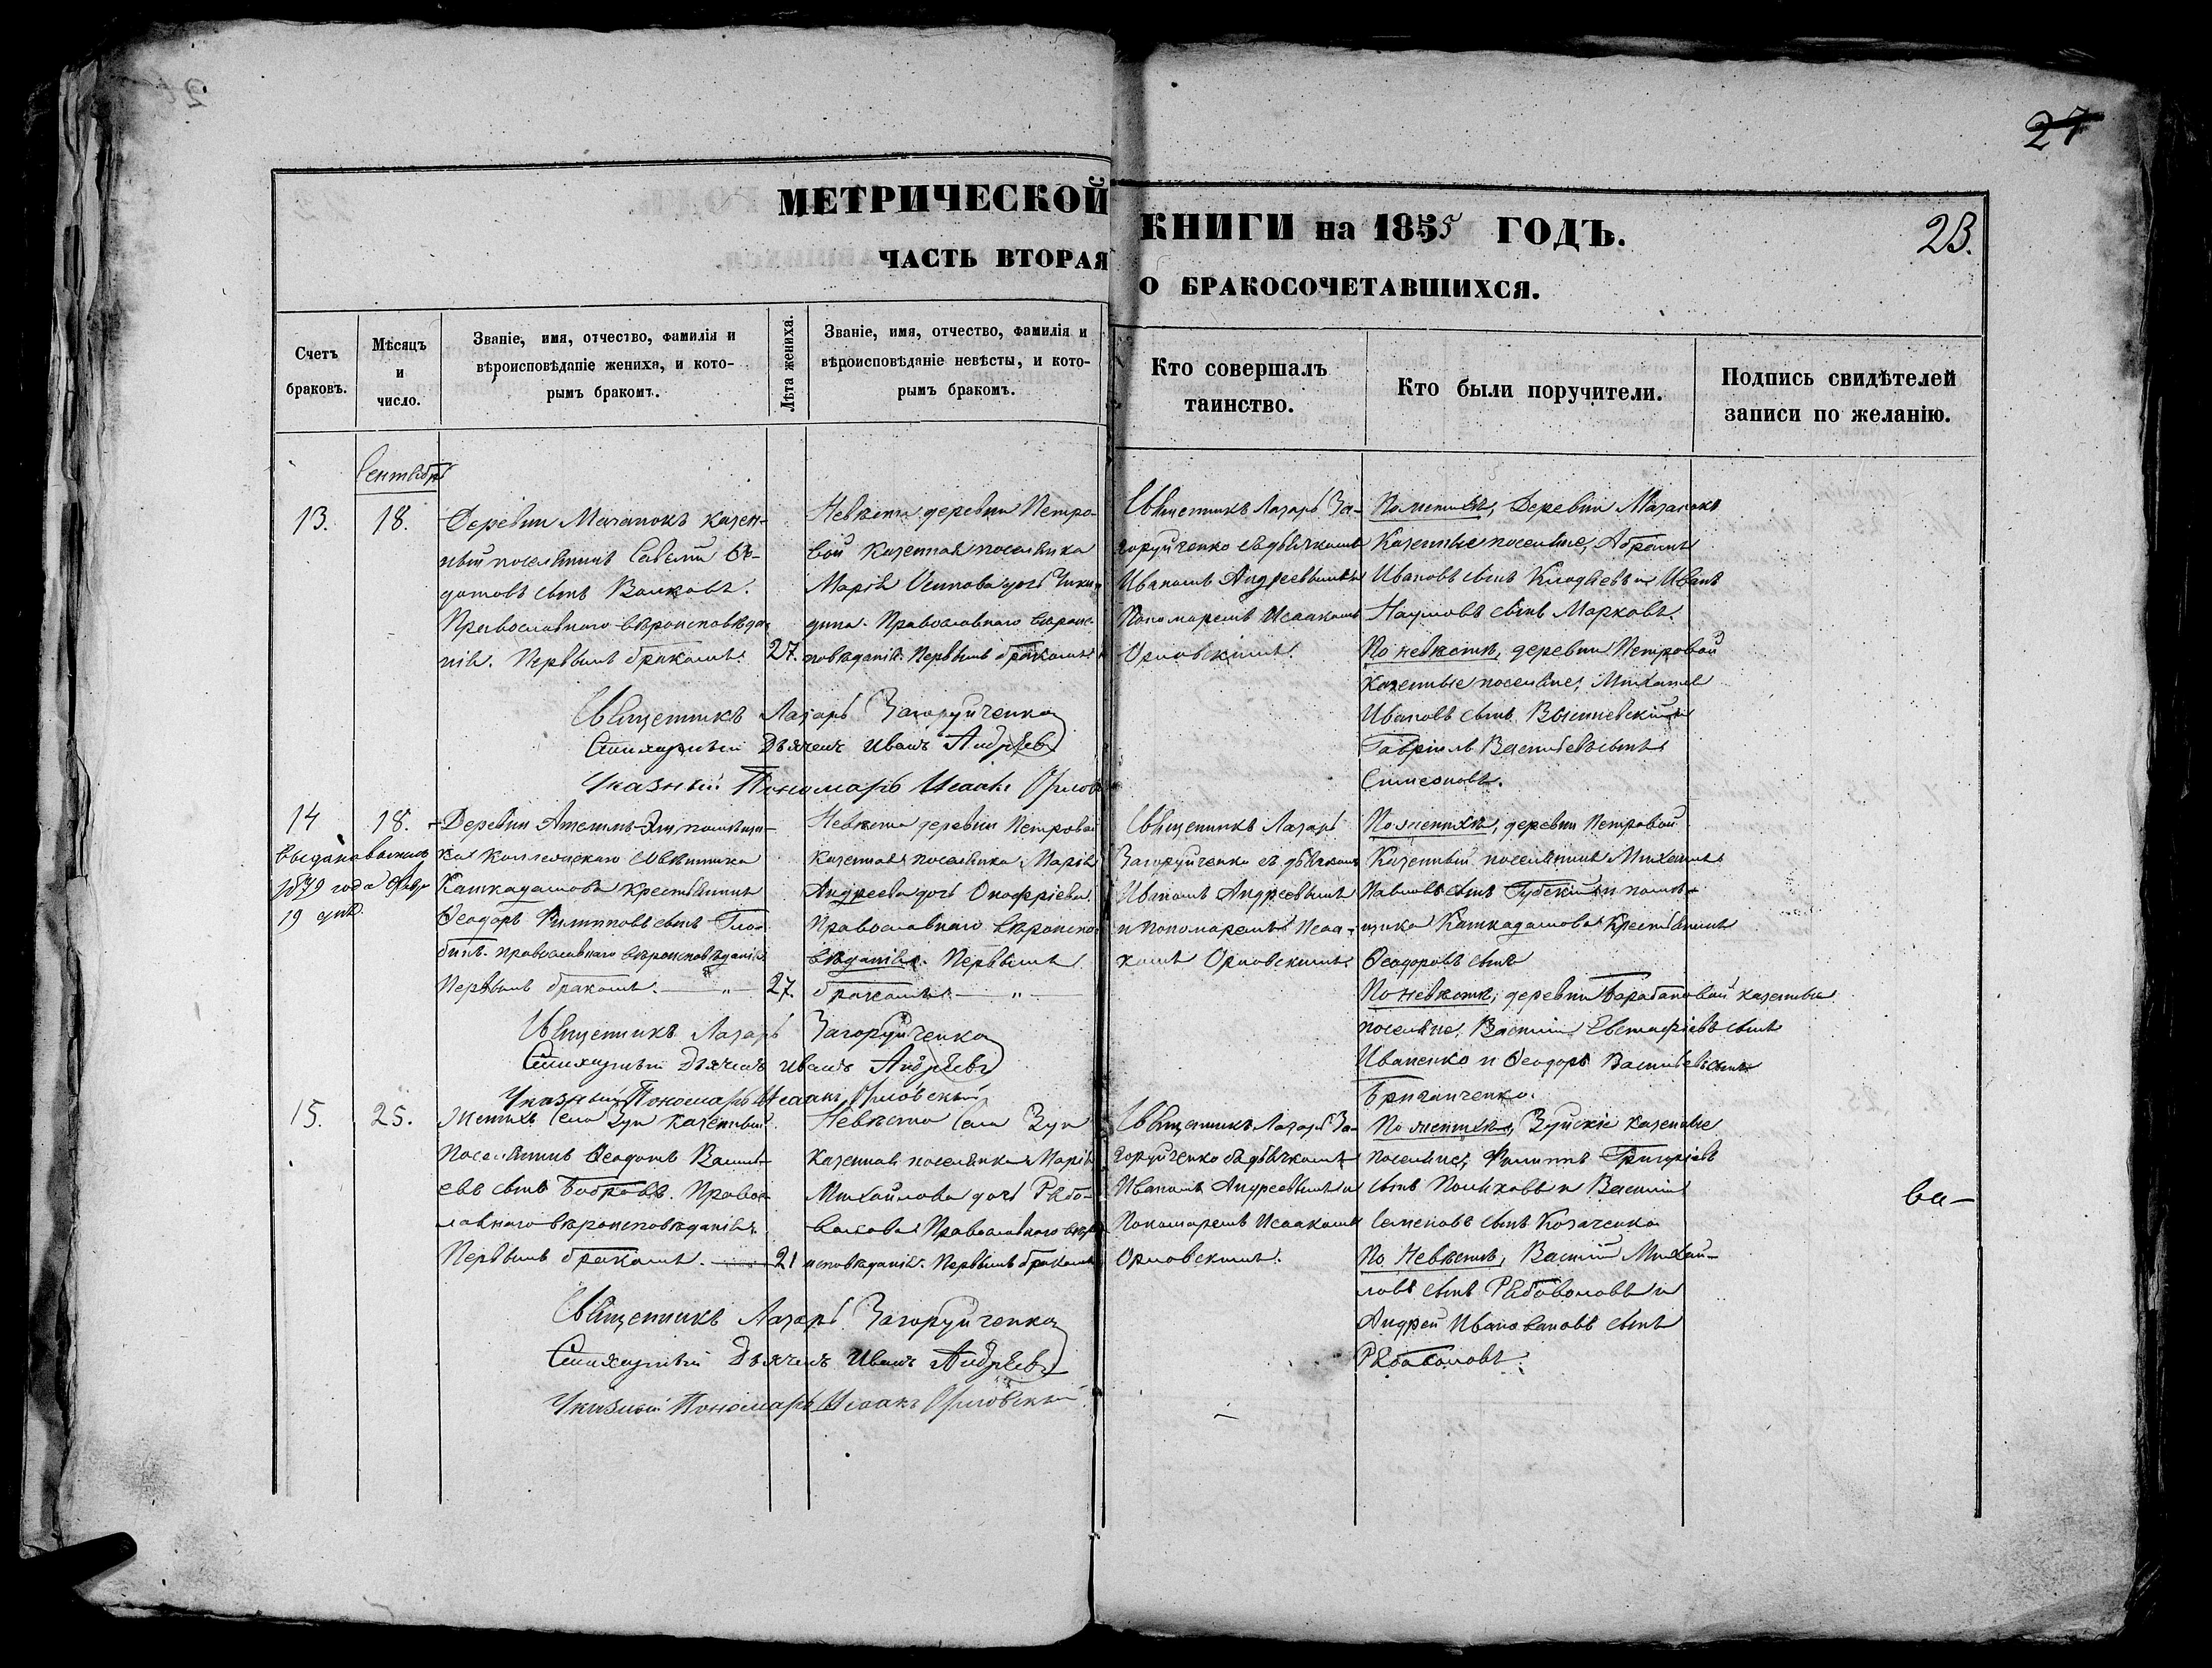 27
МЕТРИЧЕСКОЙ КНИГИ на 1855 ГОДЪ.
23.
ЧАСТЬ ВТОРАЯ О БРАКОСОЧЕТАВШИХСЯ.
Счетъ браковъ.
Мѣсяцъ и число.
Званіе, имя, отчество, фамилія и
вѣроисповѣданіе жениха, и кото-
рымъ бракомъ.
Лѣта жениха.
Званіе, имя, отчество, фамилія и
вѣроисповѣданіе невѣсты, и кото-
рымъ бракомъ.
Кто совершалъ
таинство.
Кто были поручители.
Подпись свидѣтелей
записи по желанію.
Сентябрь
13.
18.
Деревни Мазанокъ казен-
ный поселянинъ Савелій Ѳе-
дотовъ сынъ Волковъ.
Православнаго вѣроисповѣда-
нія. Первымъ бракомъ.
27.
Невѣста деревни Петро-
вой казенная поселянка
Марія Осипова дочь
Православнаго вѣроис-
повѣданія. Первымъ бракомъ.
Священникъ Лазарь За-
горуйченко съ дьячкомъ
Иваномъ Андреевымъ и
Пономаремъ Исаакомъ
Орловскимъ.
По женихѣ, Деревни Мазанокъ
Казенные поселяне, Абрамъ
Ивановъ сынъ и Иванъ
Наумовъ сынъ Марковъ.
По невѣстѣ, деревни Петровой
казенные поселяне, Михаилъ
Ивановъ сынъ Вышневскій и
Гавріилъ Васильевъ сынъ
Симеоновъ.
Священникъ Лазарь Загоруйченко
Стихарный Дьячекъ Иванъ Андреевъ
Указный Пономарь Исаакъ Орлов
14
18.
Выдана выпись
1879 года Февр
19 дня.
Деревни помѣщи-
ка Коллежскаго Совѣтника
Кашкадамова крестьянинъ
Ѳеодоръ Филиповъ сынъ Гло-
бинъ. православнаго вѣроисповѣданія
Первымъ бракомъ. — „ —
27.
Невѣста деревни Петровой
казенная поселянка Марія
Андреева дочь Онофріева.
Православнаго вѣроиспо-
вѣданія. Первымъ
бракомъ. — „ —
Священникъ Лазарь
Загоруйченко съ дьячкомъ
Иваномъ Андреевымъ
и пономаремъ Исаа-
комъ Орловскимъ.
По женихѣ, деревни Петровой
Казенный поселянинъ Михаилъ
Павловъ сынъ Губскій и помѣ-
щика Кашкадамова Крестьянинъ
Ѳеодоровъ сынъ
По невѣстѣ, деревни Барабановой казенные
поселяне, Василій Евстафіевъ сынъ
Иваненко и Ѳеодоръ Васильевъ сынъ
Священникъ Лазарь Загоруйченко
Стихарный Дьячекъ Иванъ Андреевъ
Указный Пономарь Исаакъ Орловскій
15.
25.
Женихъ Села Зуи казенный
Поселянинъ Ѳеодотъ Василь-
евъ сынъ Бобровъ. Правос-
лавнаго вѣроисповѣданія.
Первымъ бракомъ. —
21
Невѣста Села Зуи
казенная поселянка Марія
Михайлова дочь Рябо-
волова Православнаго вѣро-
исповѣданія. Первымъ бракомъ
Священникъ Лазарь За-
горуйченко съ дьячкомъ
Иваномъ Андреевымъ и
Пономаремъ Исаакомъ
Орловскимъ.
По женихѣ, Зуйскіе казенные
поселяне, Филиппъ Григоріевъ
сынъ Поляковъ и Василій
Семеновъ сынъ Козаченко
По Невѣстѣ, Василій Михай-
ловъ сынъ Рябоволовъ и
Андрей сынъ
Рябоволовъ.
Священникъ Лазарь Загоруйченко
Стихарный Дьячекъ Иванъ Андреевъ
Указный Пономарь Исаакъ Орловскій
ва-